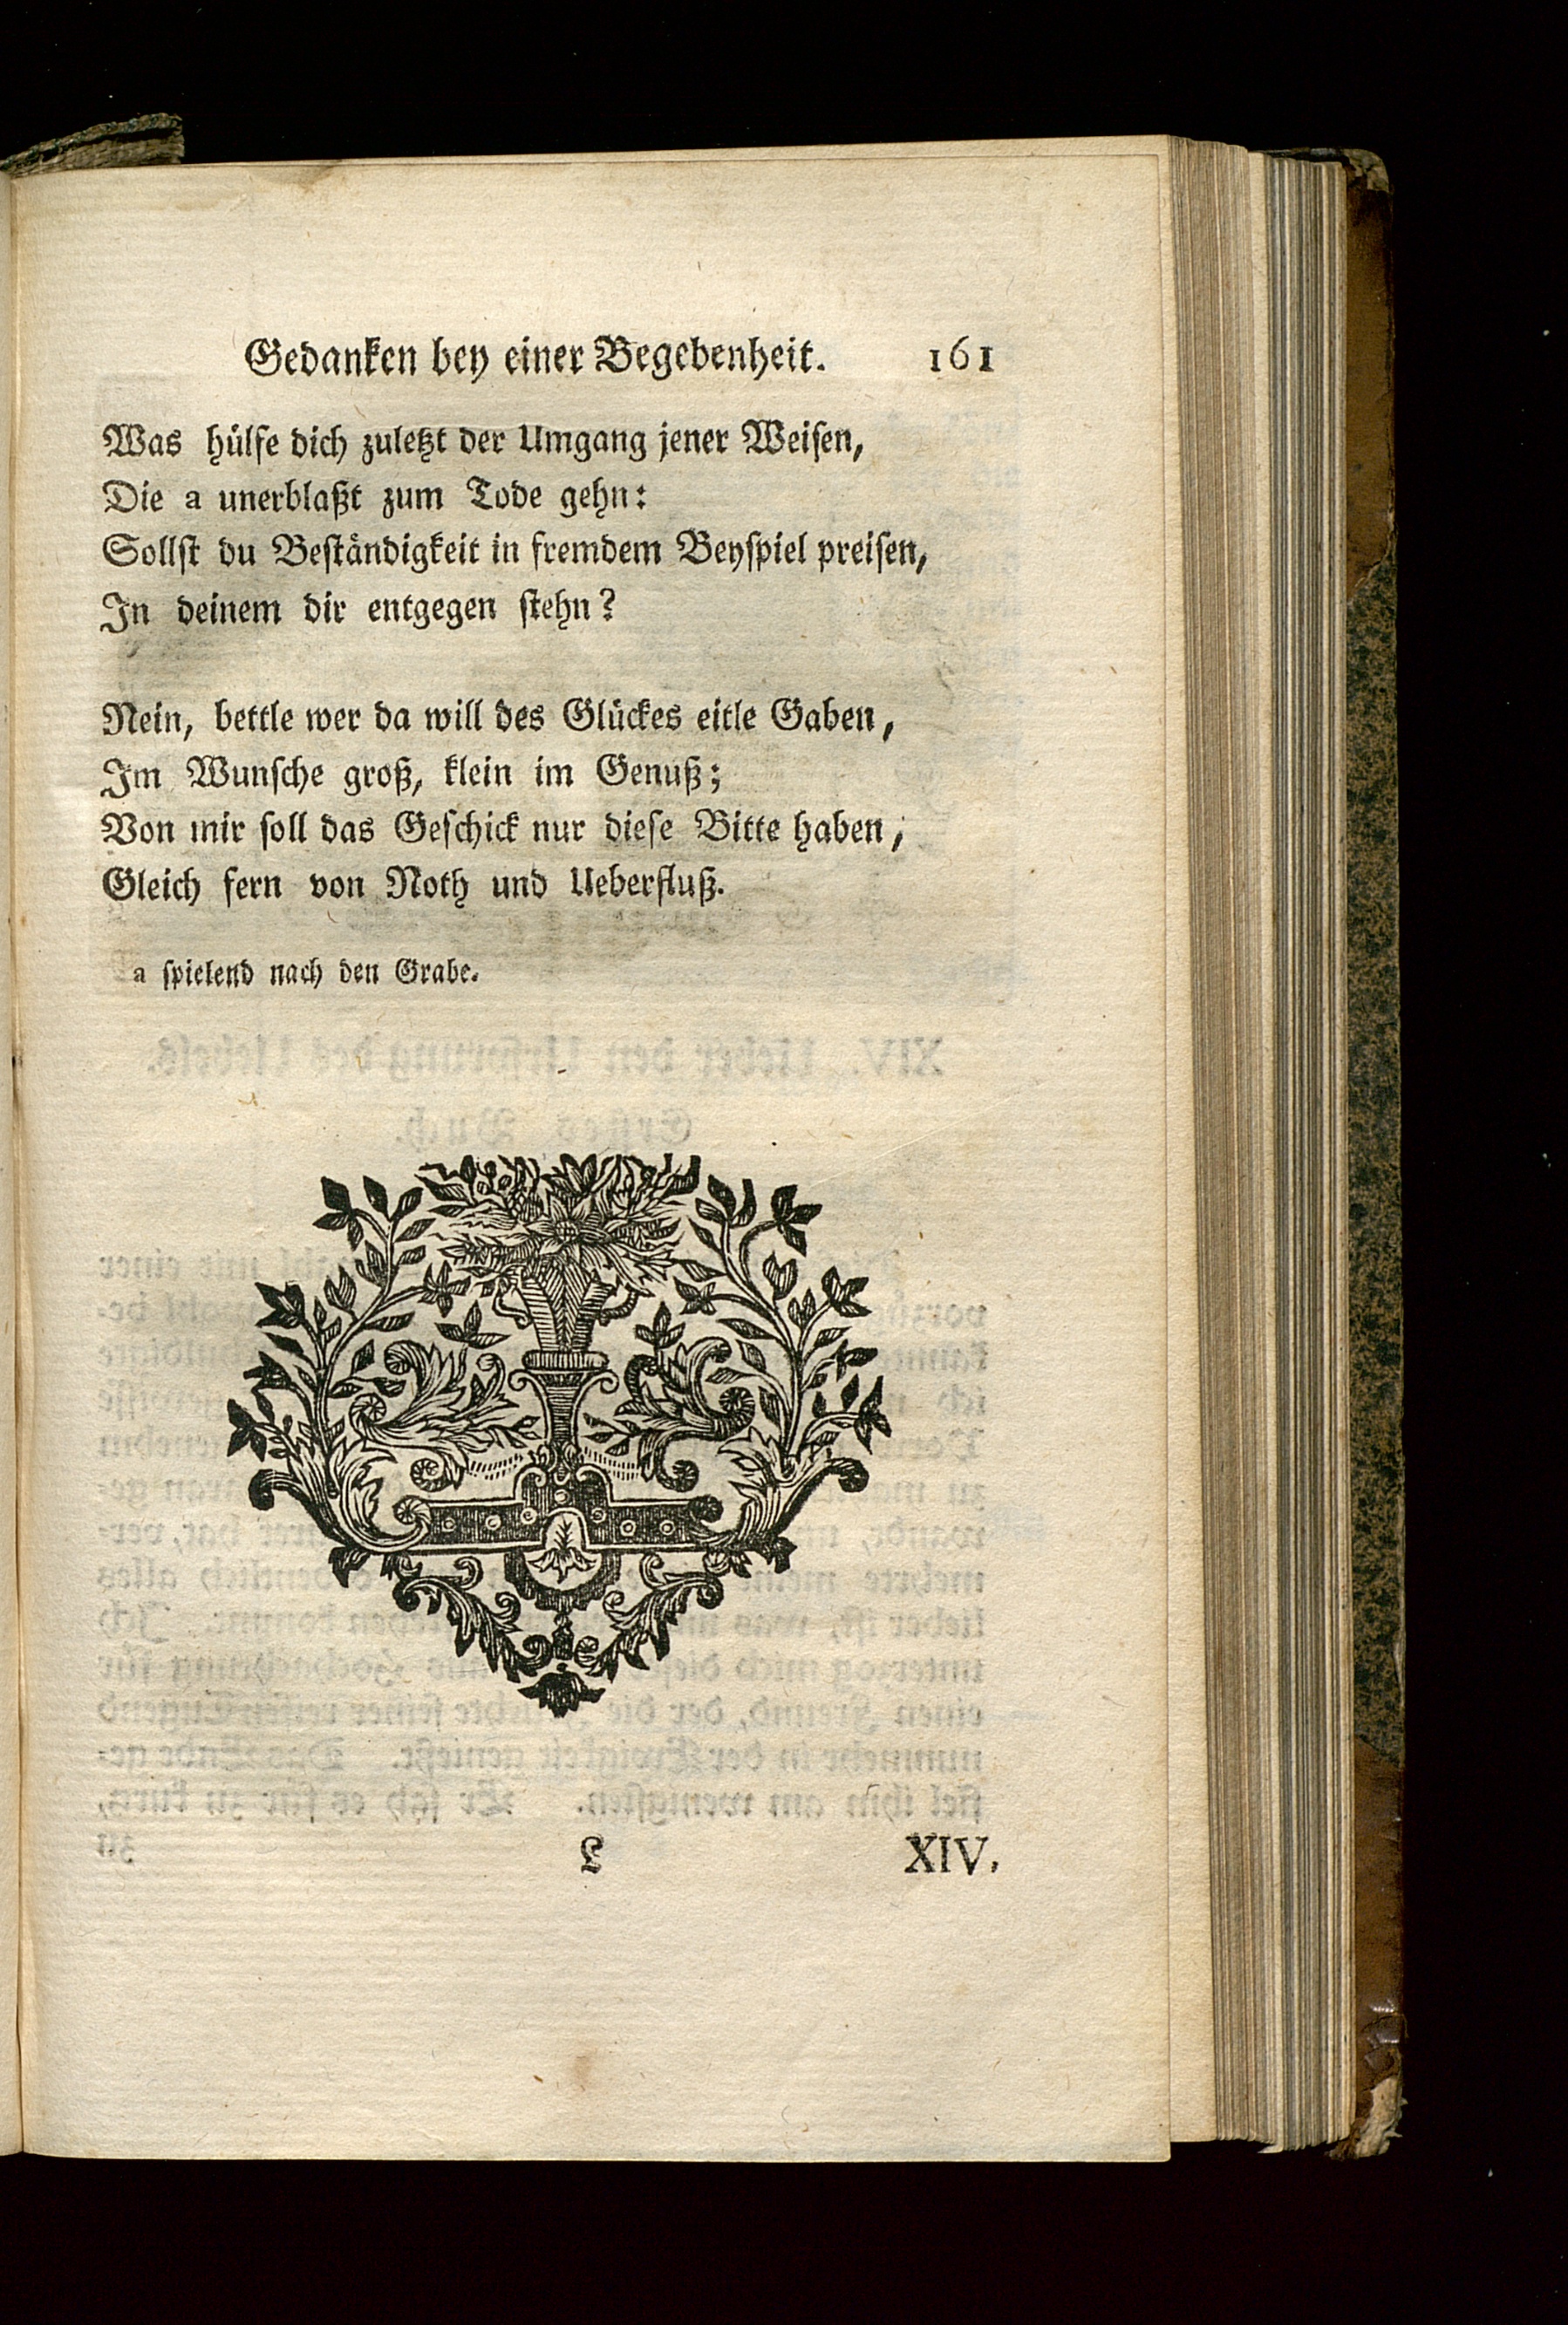 Gedanken bey einer Begebenheit. 161
Was hülfe dich zuletzt der Umgang jener Weisen,
Die a unerblaßt zum Tode gehn:
Sollst du Beständigkeit in fremdem Beyspiel preisen,
In deinem dir entgegen stehn?
Nein, bettle wer da will des Glückes eitle Gaben,
Im Wunsche groß, klein im Genuß;
Von mir soll das Geschick nur diese Bitte haben,
Gleich fern von Noth und Ueberfluß.
a spielend nach den Grabe.
L XIV.